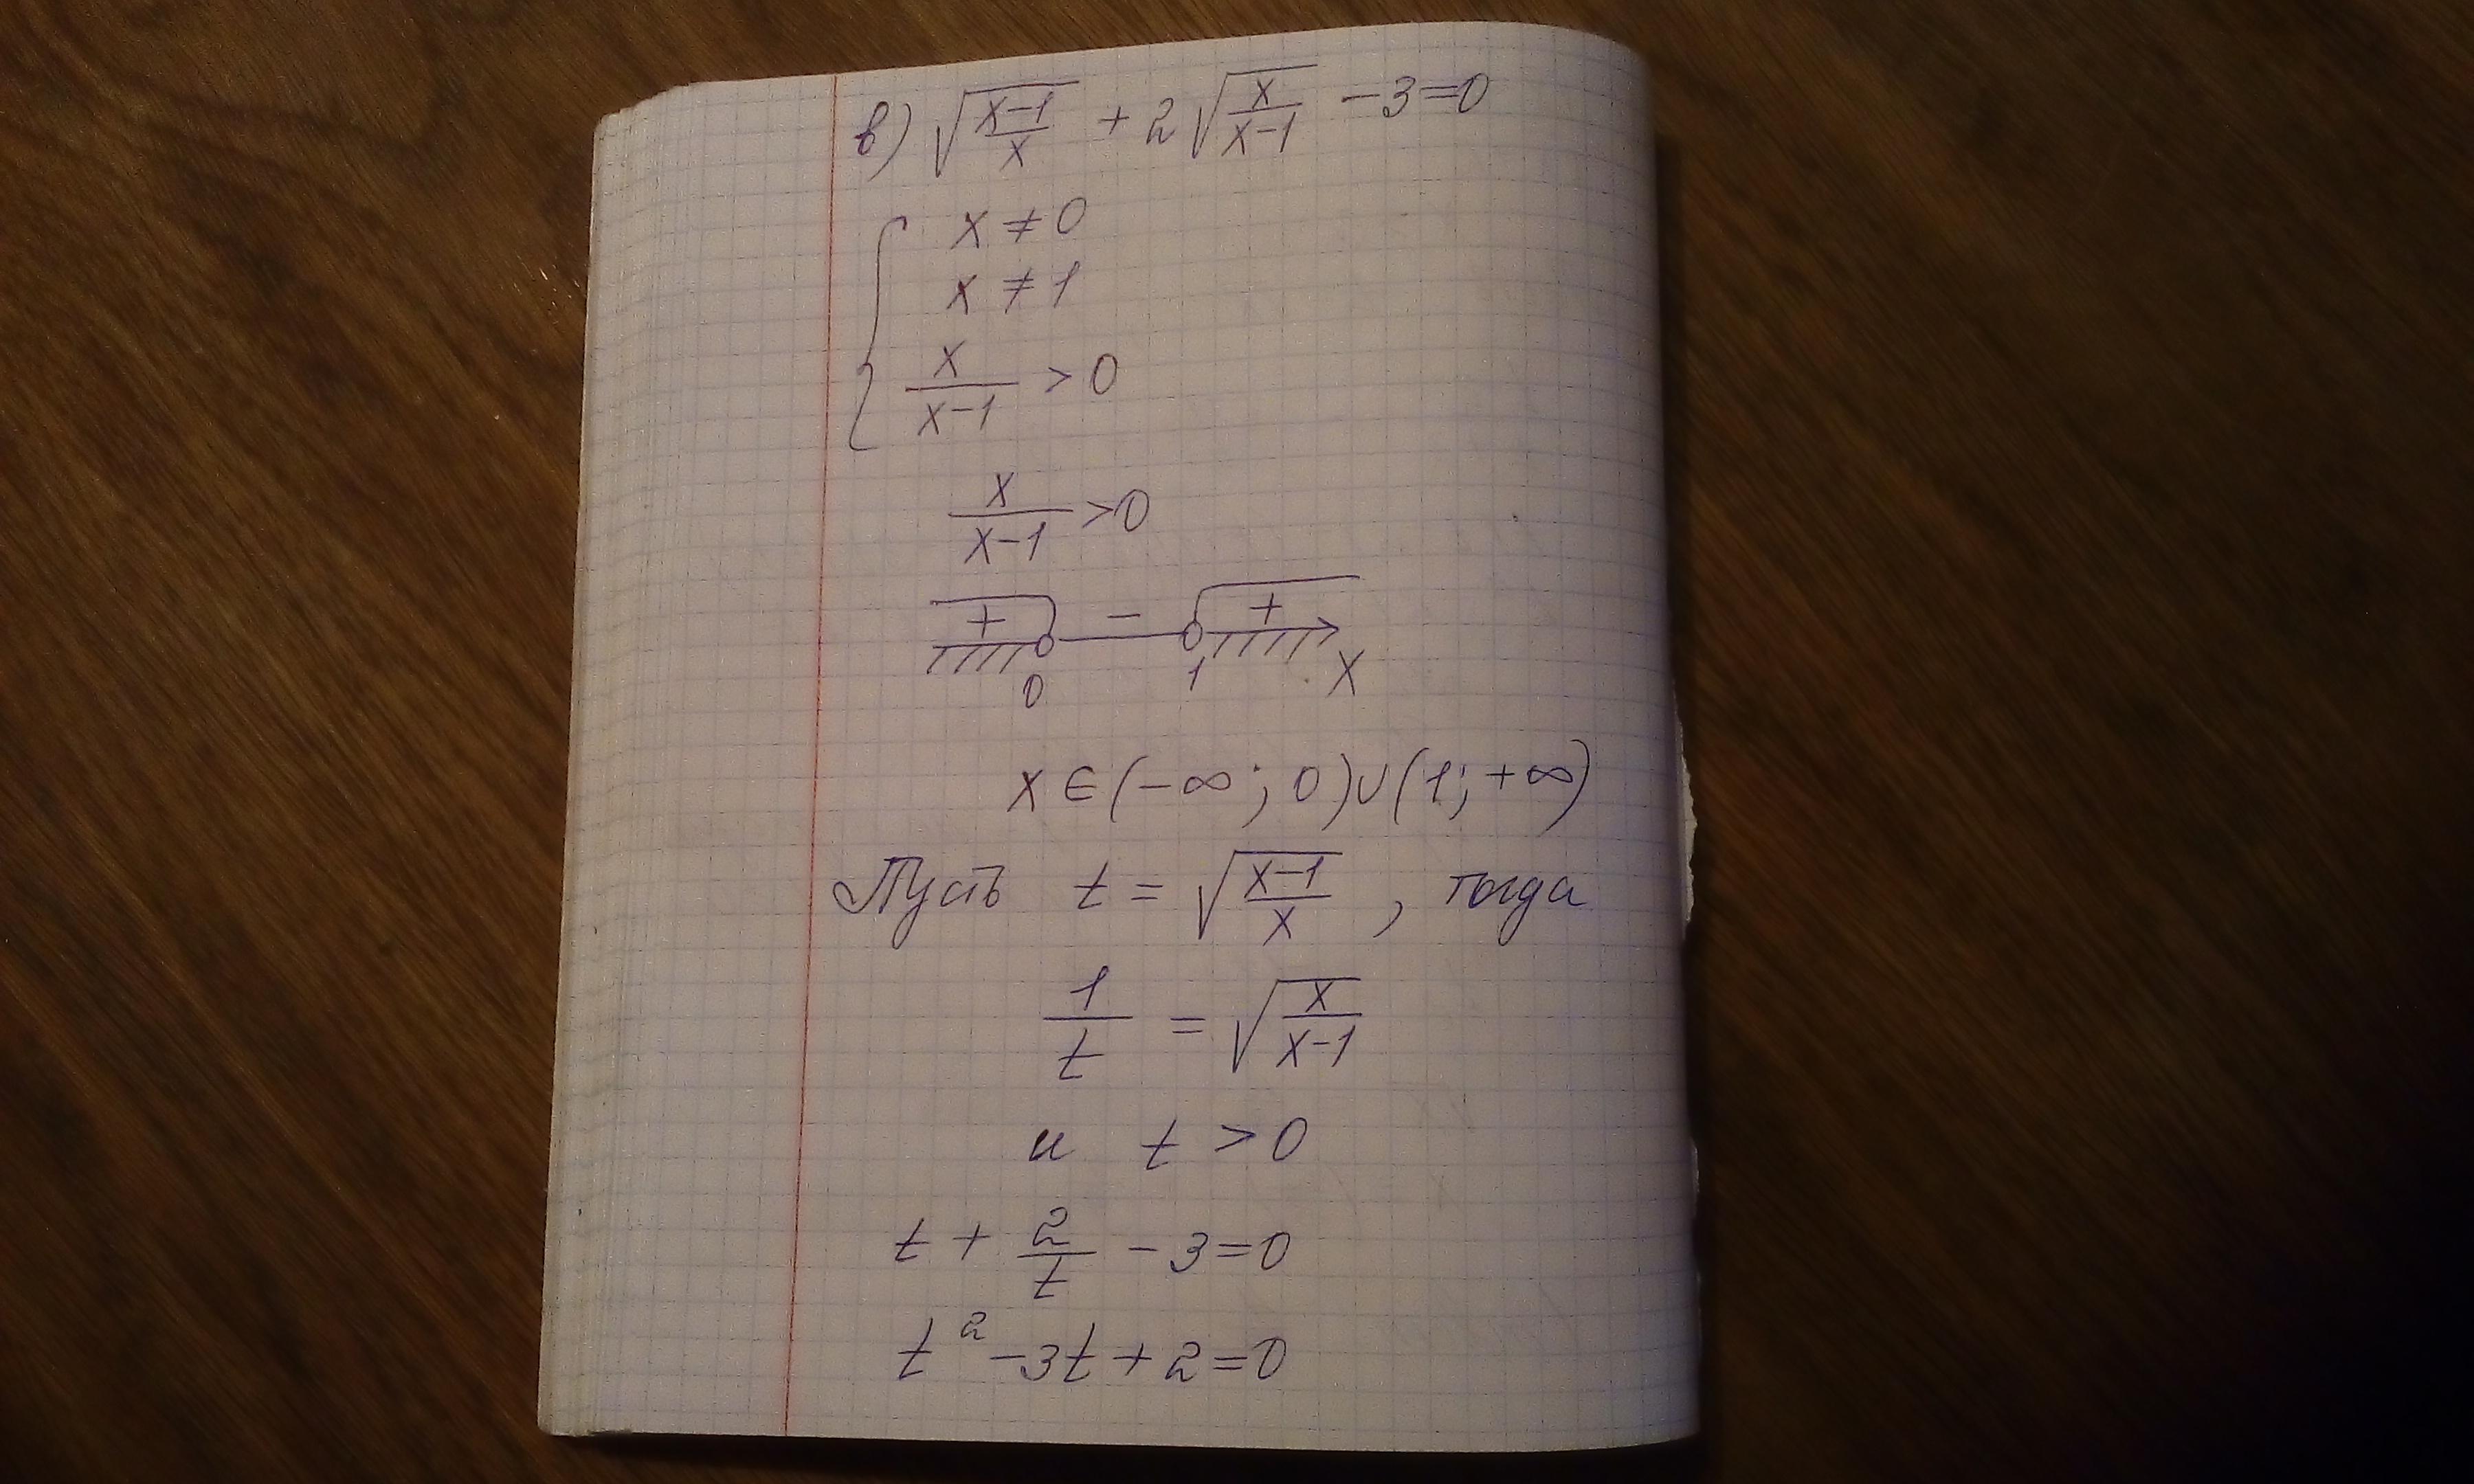 в) √((x-1)/x) + 2√(x/(x-1)) - 3 = 0
x ≠ 0
x ≠ 1
x/(x-1) > 0
x/(x-1) > 0
+ - +
0 1 x
x ∈ (-∞; 0) ∪ (1; +∞)
Пусть t = √((x-1)/x), тогда
1/t = √(x/(x-1))
и t > 0
t + 2/t - 3 = 0
t² - 3t + 2 = 0